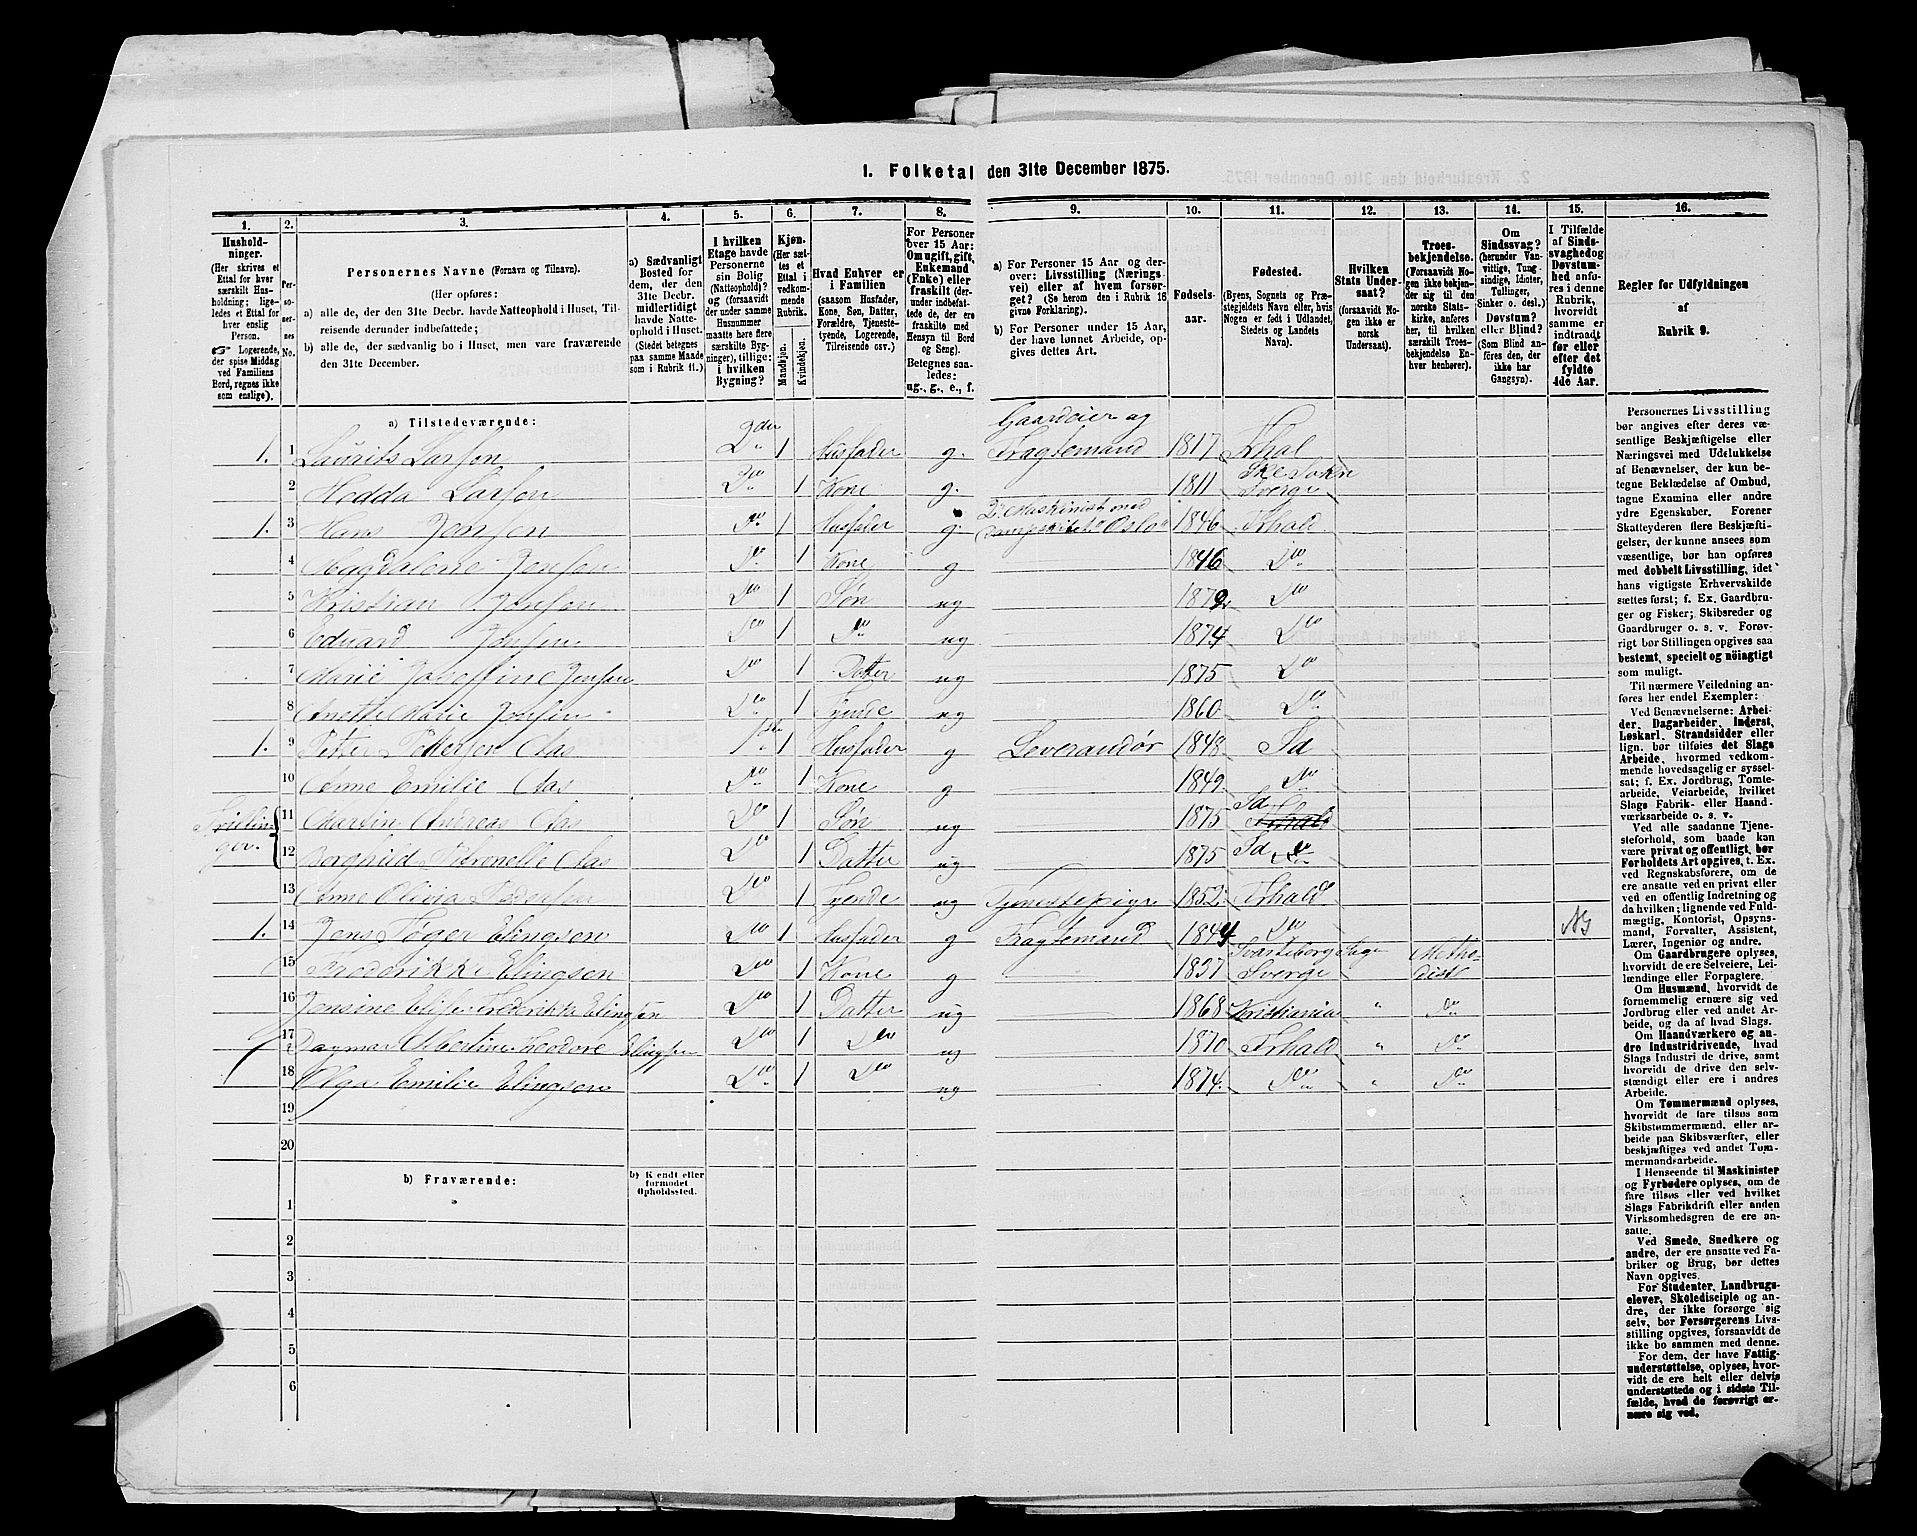 1. Folketal den 31te December 1875.
1. 2. 3. 4. 5. 6. 7. 8. 9. 10. 11. 12. 13. 14. 15. 16.
Hushold-
ninger.
(Her skrives et
Ettal for hver
særskilt Hus-
holdning; lige-
ledes et Ettal
for hver
enslig
Person.
☞ Logerende,
der spise Middag
ved Familiens
Bord, regnes ikke
som enslige).
Per-
so-
ner-
nes
No.
Personernes Navne (Fornavn og Tilnavn).
(Her opføres:
a) alle de, der den 31te Decbr. havde Natteophold i Huset, Til-
reisende derunder indbefattede;
b) alle de, der sædvanlig bo i Huset, men vare fraværende
den 31te December.
a) Sædvanligt
Bosted for
dem, der den
31te Decbr.
midlertidigt
havde Natte-
ophold i Huset.
(Stedet betegnes
paa samme Maade
som i Rubrik 11.)
I hvilken
Etage havde
Personerne
sin Bolig
(Natteophold)?
og (forsaavidt
der under samme
Husnummer
maatte høre flere
særskilte Byg-
ninger), tillige:
i hvilken
Bygning?
Kjøn.
(Her sæt-
tes et
Ettal i
vedkom-
mende
Rubrik.
Mandkjøn.
Kvindekjøn.
Hvad Enhver er
i Familien
(saasom Husfader,
Kone, Søn, Datter,
Forældre, Tjeneste-
tyende, Logerende,
Tilreisende osv.)
For Personer
over 15 Aar:
Om ugift, gift,
Enkemand
(Enke) eller
fraskilt (der-
under indbefat-
tede de, der
ere fraskilte med
Hensyn til Bord
og Seng).
Betegnes saa-
ledes:
ug., g., e., f.
a) For Personer 15 Aar og der-
over: Livsstilling (Nærings-
vei) eller af hvem forsør-
get? (Se herom den i Rubrik 16
givne Forklaring).
b) For Personer under 15 Aar,
der have lønnet Arbeide, op-
gives dettes Art.
Fødsels-
aar.
Fødested.
(Byens, Sognets og Præ-
stegjeldets Navn eller, hvis
Nogen er født i Udlandet,
Stedets og Landets
Navn).
Hvilken
Stats Under-
saat?
(forsaavidt No-
gen ikke er
norsk
Undersaat).
Troes-
bekjendelse.
(Forsaavidt No-
gen ikke bekjen-
der sig til den
norske Stats-
kirke, anføres
her, til hvilken
særskilt Troes-
bekjendelse En-
hver henhører).
Om
Sindssvag?
(herunder Van-
vittige, Tung-
sindige, Idioter,
Tullinger,
Sinker o. desl.)
Døvstum?
eller Blind?
(Som Blind an-
føres den, der
ikke har
Gangsyn).
I Tilfælde
af Sinds-
svaghed og
Døvstum-
hed anfø-
res i denne
Rubrik,
hvorvidt
samme er
indtraadt
før eller
efter det
fyldte
4de Aar.
Regler for Udfyldningen
af
Rubrik 9.
a) Tilstedeværende:
1. 1 Laurits Larsen 2den Do 1 Husfader g. Gaardeier og Fragtemand 1817 Frhal
2 Hedda Larsen Do 1 Kone g. 1811 Skee Sokn Sverge
1. 3 Hans Jensen Do 1 Husfader g. 2. Maskinist med Dampskibet "Oslo" 1846 Frhald
4 Magdalene Jensen Do 1 Kone g 1846 Do
5 Kristian Jensen Do 1 Søn ug 1872 Do
6 Edvard Jensen Do 1 Do ug 1874 Do
7 Marie Josefine Jensen Do 1 Datter ug 1875 Do
8 Anette Marie Jensen Do 1 Tyende ug 1860 Do
1. 9 Petter Pedersen Aas 1ste 1 Husfader g Leverandør 1848 Id
10 Anne Emilie Aas Do 1 Kone g 1849 Do
Tvillin-
ger.
11 Martin Andreas Aas Do 1 Søn ug 1875 Id Frhald
12 Borghild Petronelle Aas Do 1 Datter ug 1875 Id Do
13 Anne Olivia Pedersen Do 1 Tyende ug Tjenestepige 1852 Frhald
1. 14 Jens Tøger Elingsen Do 1 Husfader g Fragtemand 1844 Do
15 Frederikke Elingsen Do 1 Kone g 1837 Svarteborg Sverge Metho-
dist
16 Jensine Elise Fredrikke Elingsen Do 1 Datter ug 1868 Kristiania " Do
17 Dagmar Albertine Theodore Elingsen Do 1 Do ug 1870 Frhald " Do
18 Olga Emilie Elingsen Do 1 Do ug 1874 Do " Do
19
20
b) Fraværende:
b) Kjendt eller
formodet
Opholdssted.
1
2
3
4
5
6
Personernes Livsstilling
bør angives efter deres væ-
sentlige Beskjæftigelse eller
Næringsvei med Udelukkelse
af Benævnelser, der kun be-
tegne Beklædelse af Ombud,
tagne Examina eller andre
ydre Egenskaber. Forener
Skatteyderen flere Beskjæfti-
gelser, der kunne ansees som
væsentlige, bør han opføres
med dobbelt Livsstilling, idet
hans vigtigste Erhvervskilde
sættes først; f. Ex. Gaardbru-
ger og Fisker; Skibsreder og
Gaardbruger o. s. v. Forøv-
rigt bør Stillingen opgives saa
bestemt, specielt og nöiagtigt
som muligt.
Til nærmere Veiledning an-
føres her endel Exempler:
Ved Benævnelserne: Arbei-
der, Dagarbeider, Inderst,
Løskarl, Strandsidder eller
lign. bør tilføies det Slags
Arbeide, hvormed vedkom-
mende hovedsagelig er syssel-
sat; f. Ex. Jordbrug, Tomte-
arbeide, Veiarbeide, hvilket
Slags Fabrik- eller Haand-
værksarbeide o. s. v.
Ved alle saadanne Tjene-
steforhold, som baade kan
være privat og offentligt, bør
Forholdets Art opgives, t. Ex.
ved Regnskabsførere, om de
ere ansatte ved en privat eller
ved en offentlig Indretning og
da hvilken; lignende ved Fuld-
mægtig, Kontorist, Opsyns-
mand, Forvalter, Assistent,
Lærer, Ingeniør og andre.
Om Gaardbrugere oplyses,
hvorvidt de ere Selveiere, Lei-
lændinge eller Forpagtere.
Om Husmænd, hvorvidt de
fornemmelig ernære sig ved
Jordbrug eller ved andet Ar-
beide, og da af hvad Slags.
Om Haandværkere og an-
dre Industridrivende, hvad
Slags Industri de drive, samt
hvorvidt de drive den selv-
stændigt eller ere i andres
Arbeide.
Om Tømmermænd oplyses,
hvorvidt de fare tilsøs som
Skibstømmermænd, eller ar-
beide paa Skibsværfter, eller
beskjæftiges ved andet Tøm-
mermandsarbeide.
I Henseende til Maskinister
og Fyrbødere oplyses, om de
fare tilsøs eller ved hvilket
Slags Fabrikdrift eller anden
Virksomhedsgren de ere an-
satte.
Ved Smede, Snedkere og
andre, der ere ansatte ved Fa-
briker og Brug, bør dettes
Navn opgives.
For Studenter, Landbrugs-
elever, Skoledisciple og an-
dre, der ikke forsørge sig
selv, bør Forsørgerens Livs-
stilling opgives, forsaavidt de
ikke bo sammen med denne.
For dem, der have Fattig-
understøttelse, oplyses, hvor-
vidt de ere helt eller delvis
understøttede og i sidste Til-
fælde, hvad de forøvrigt er-
nære sig ved.